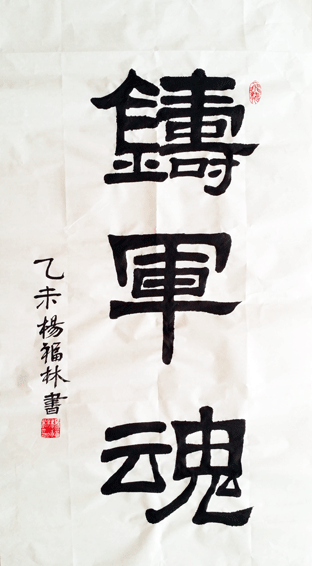 鑄軍魂
乙未楊福林書